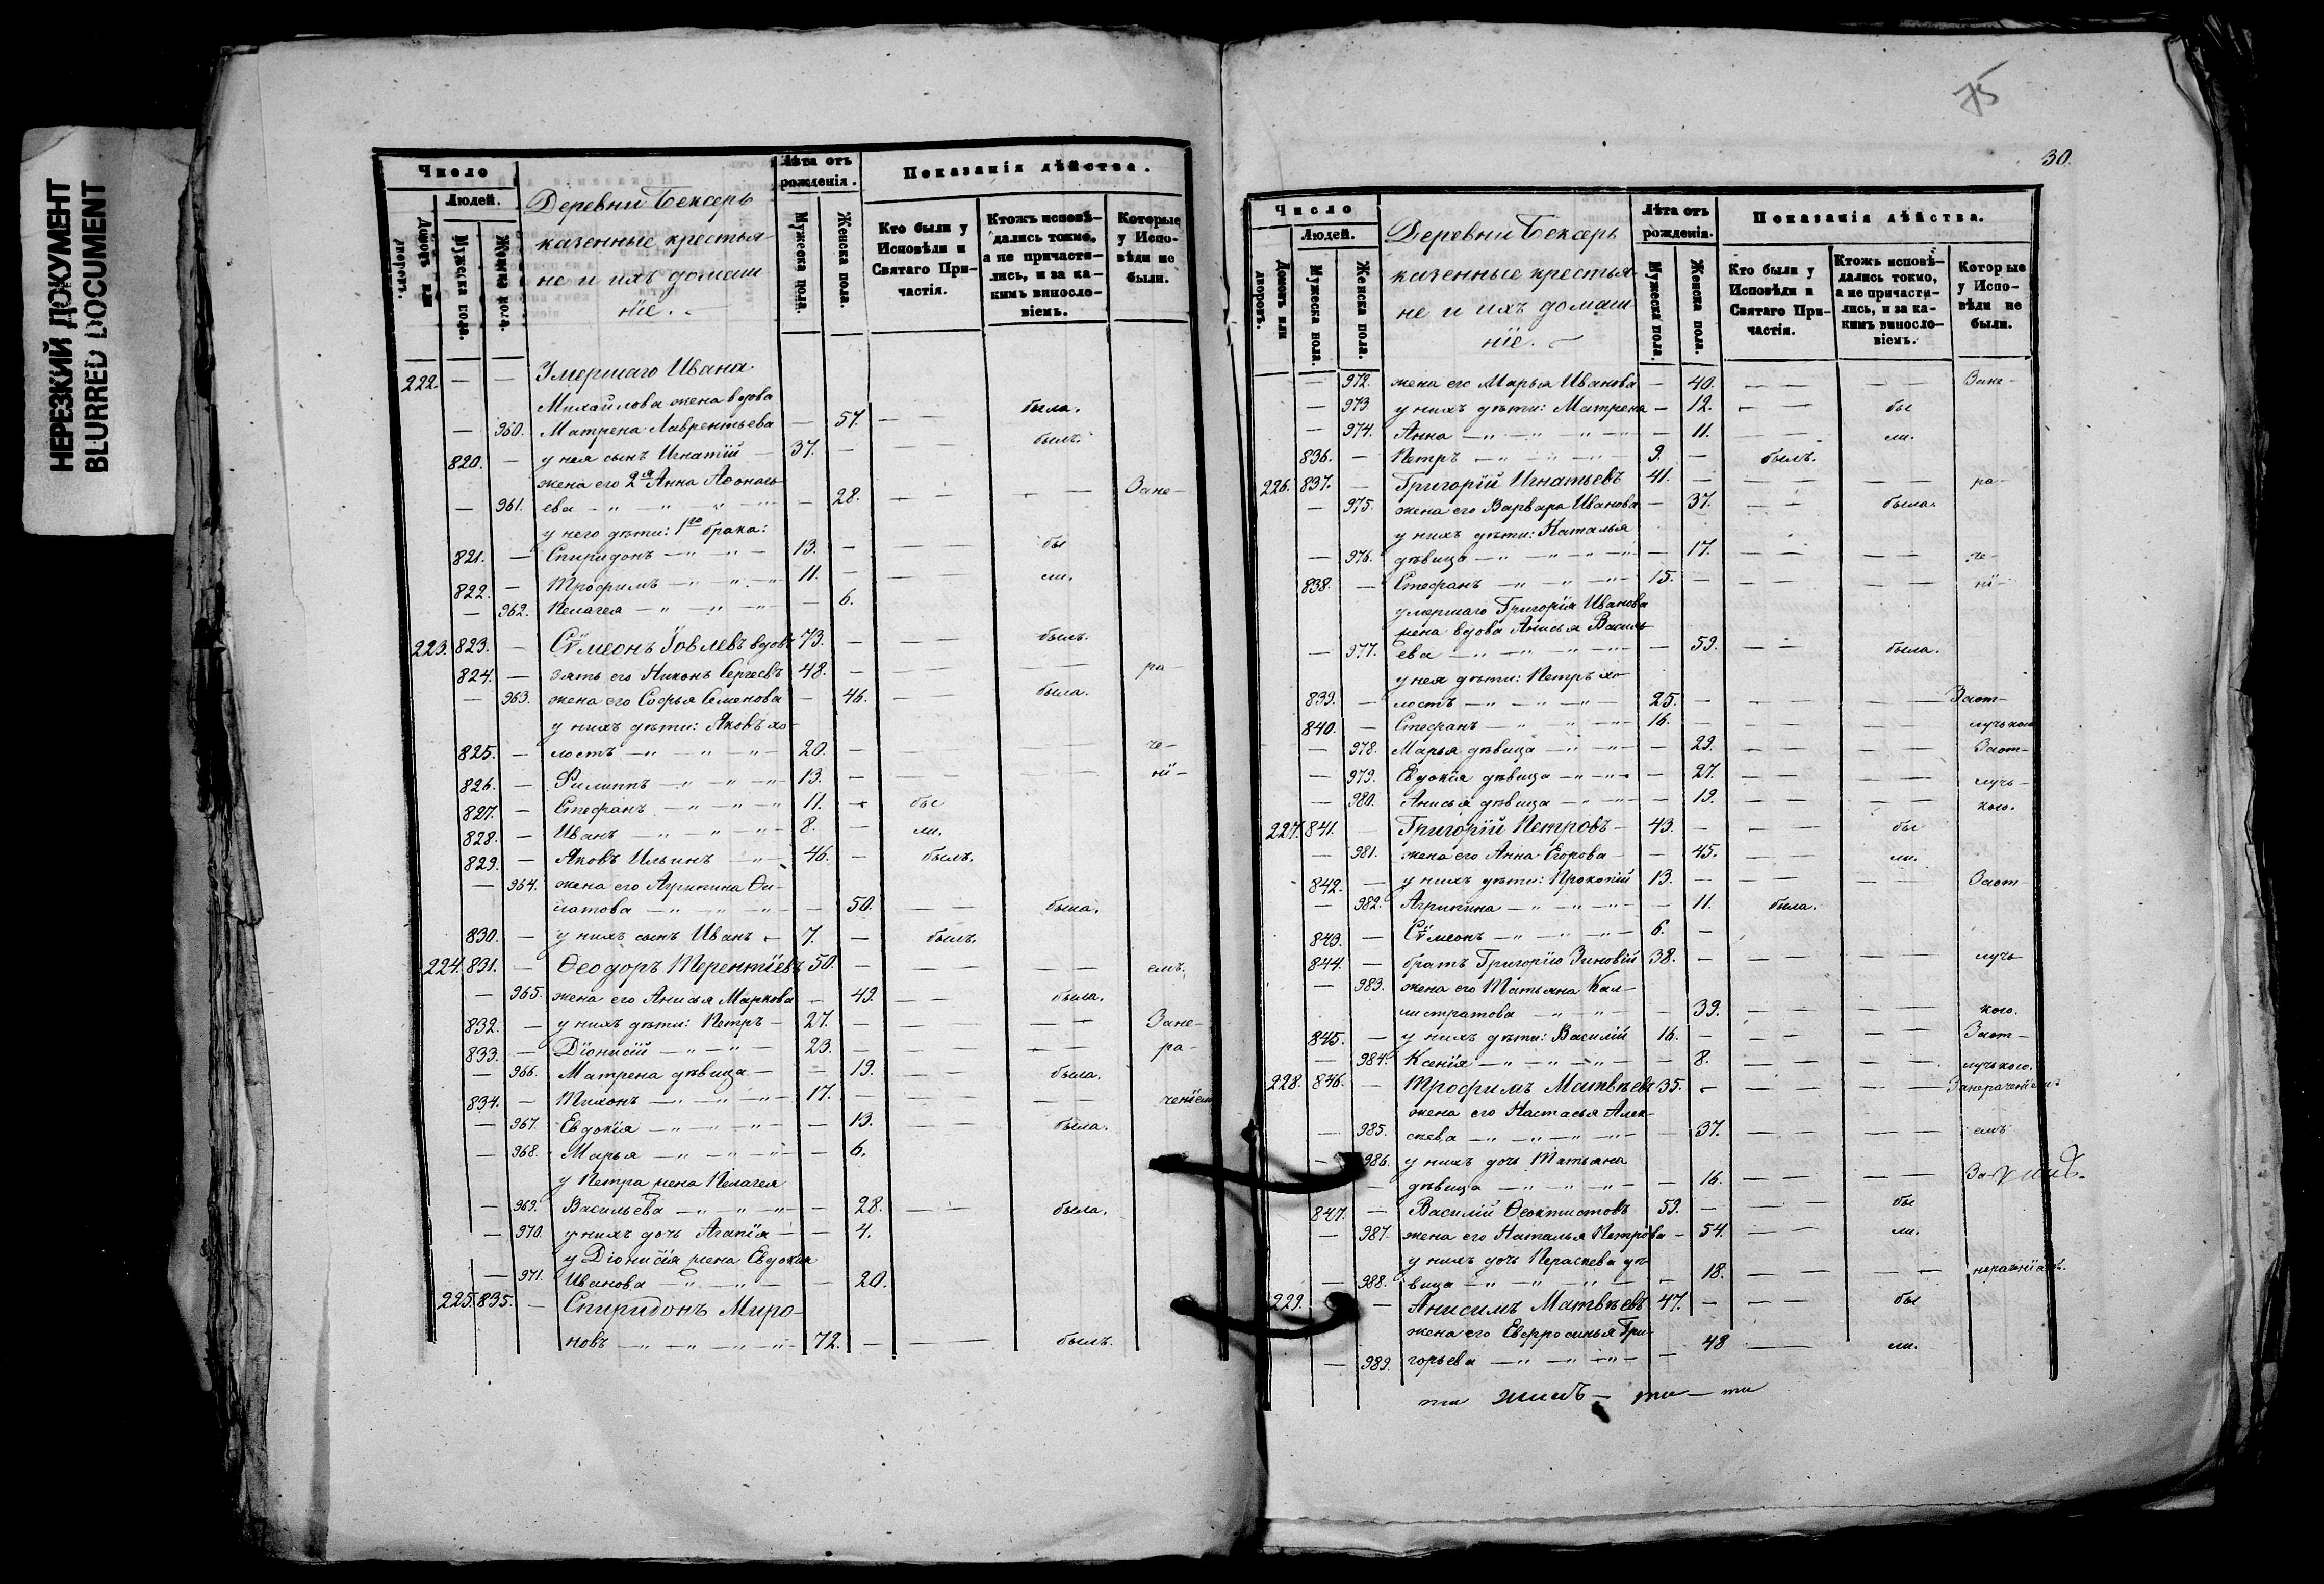 НЕРЕЗКИЙ ДОКУМЕНТ
BLURRED DOCUMENT
Число
Людей.
Домовъ или дворовъ.
Мужеска пола.
Женска пола.
Деревни Бексеръ
казенные крестья-
не и ихъ домаш
ніе. —
Лѣта отъ рожденія.
Мужеска пола.
Женска пола.
Показанія дѣйства.
Кто были у Исповѣди и Святаго Причастія.
Ктожъ исповѣ-
дались токмо,
а не причасти-
лись, и за ка-
кимъ виносло-
віемъ.
Которые
у Испо-
вѣди не
были.
222. — — Умершаго Ивана
Михайлова жена вдова
— 960. Матрена Лаврентьева — 57. — — была.
820. — у нея сынъ Игнатій — 37. — — — былъ.
жена его 2я Анна Аѳонась
— 961. ева — „ — „ — „ — — 28. — — — — Зане-
у него дѣти: 1го брака:
821. — Спиридонъ — „ — „ — 13. — — — бы
822. — Трофимъ — „ — „ — 11. — — — ли.
— 962. Пелагея — „ — „ — — 6.
223. 823. — Сѵмеонъ Іовлевъ вдовъ 73. — — — былъ.
824. — зять его Никонъ Сергеевъ 48. — — — — — ра-
— 963. жена его Софья Семенова — 46. — — была.
у нихъ дѣти: Яковъ хо-
825. — лостъ — „ — „ — „ — 20. — — — — — че-
826. — Филиппъ — „ — „ — 13. — — — — — ні-
827. — Стефанъ — „ — „ — „ 11. — бы
828. — Иванъ — „ — „ — „ — 8. — ли.
829. — Яковъ Ильинъ — „ — 46. — былъ.
— 964. жена его Агрипина Фи-
латова — „ — „ — „ — — 50. — — была.
830. — у нихъ сынъ Иванъ — 7. — былъ.
224. 831. — Ѳеодоръ Терентіевъ 50. — — — — — емъ.
— 965. жена его Анисья Маркова — 49. — — была.
832. — у нихъ дѣти: Петръ — 27. — — — — — Зане-
833. — Діонисій — „ — „ — 23. — — — — — ра-
— 966. Матрена дѣвица — — 19. — — была.
834. — Тихонъ — „ — „ — „ — 17. — — — — — ченіем
— 967. Евдокія — „ — „ — „ — — 13. — — была.
— 968. Марья — „ — „ — „ — — 6.
у Петра жена Пелагея
— 969. Васильева — „ — „ — „ — — 28. — — была.
— 970. у нихъ дочь Агапія — — 4.
у Діонисія жена Евдокія
— 971. Иванова — „ — „ — — 20.
225. 835. — Спиридонъ Миро-
новъ — „ — „ — „ — „ — 72. — — — былъ.
75
30.
Число
Людей.
Домовъ или дворовъ.
Мужеска пола.
Женска пола.
Деревни Бексеръ
казенные крестья-
не и ихъ домаш
ніе. —
Лѣта отъ рожденія.
Мужеска пола.
Женска пола.
Показанія дѣйства.
Кто были у Исповѣди и Святаго Причастія.
Ктожъ исповѣ-
дались токмо,
а не причасти-
лись, и за ка-
кимъ виносло-
віемъ.
Которые
у Испо-
вѣди не
были.
— 972. жена его Марья Иванова — 40. — — — — Зане-
— 973 у нихъ дѣти: Матрена — 12. — — бы
— 974. Анна — „ — „ — „ — „ — 11. — — ли.
836. — Петръ — „ — „ — „ — 9. — былъ.
226. 837. — Григорій Игнатьевъ 41. — — — — — ра-
— 975. жена его Варвара Иванова — 37. — — была.
у нихъ дѣти: Наталья
— 976. дѣвица — „ — „ — „ — „ — 17. — — — — че-
838. — Стефанъ — „ — „ — „ — 15. — — — — — ні-
умершаго Григорія Иванова
жена вдова Анисья Василь
— 977. ева — „ — „ — „ — „ — 59. — — была.
у нея дѣти: Петръ хо-
839. — лостъ — „ — „ — „ — 25. — — — — — Заот-
840. — Стефанъ — „ — „ — „ — 16. — — — — — лучькою
— 978. Марья дѣвица — „ — „ — — 29. — — — — Заот-
— 979. Евдокія дѣвица — „ — „ — — 27. — — — — лучь-
— 980. Анисья дѣвица — „ — „ — — 19. — — — — кою.
227. 841. — Григорій Петровъ — 43. — — — бы
— 981. жена его Анна Егорова — — 45. — — ли.
842. — у нихъ дѣти: Прокопій 13. — — — — — Заот-
— 982. Агрипина — „ — „ — „ — — 11. была.
843. — Сѵмеонъ — „ — „ — „ — 6. —
844. — братъ Григорію Зиновій 38. — — — — — лучь
— 983. жена его Татьяна Кал-
листратова — „ — „ — — 39. — — — — кою.
845. — у нихъ дѣти: Василій 16. — — — — — Заот-
— 984. Ксенія — „ — „ — „ — — 8. — — — — лучькою.
228. 846. — Трофимъ Матвѣевъ 35. — — — — — Занераченіемъ
жена его Настасья Алек-
— 985. сѣева — „ — „ — „ — „ — 37. — — — — емъ
— 986. у нихъ дочь Татьяна
— дѣвица — „ — „ — „ — — 16. — — — — За
847. — Василій Ѳеоктистовъ 59. — — — бы
— 987. жена его Наталья Петрова — 54. — — ли.
у нихъ дочь Пераскева дѣ-
— 988. вица — „ — „ — „ — — 18. — — — —
229. — Анисимъ Матвѣевъ 47. — — — бы
жена его Евфросинья Гри-
— 989. горьева — „ — „ — „ — — 48 — — ли.